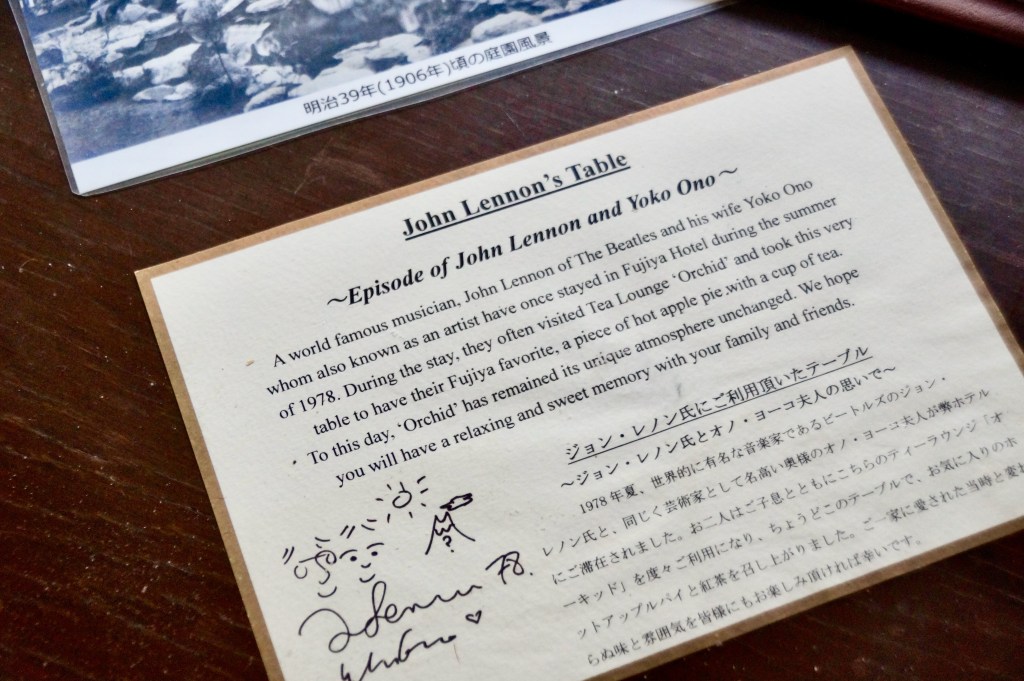 明治39年(1906年)頃の庭園風景
John Lennon's Table
～Episode of John Lennon and Yoko Ono～
A world famous musician, John Lennon of The Beatles and his wife Yoko Ono
whom also known as an artist have once stayed in Fujiya Hotel during the summer
of 1978. During the stay, they often visited Tea Lounge 'Orchid' and took this very
table to have their Fujiya favorite, a piece of hot apple pie with a cup of tea.
To this day, 'Orchid' has remained its unique atmosphere unchanged. We hope
you will have a relaxing and sweet memory with your family and friends.
ジョン・レノン氏にご利用頂いたテーブル
～ジョン・レノン氏とオノ・ヨーコ夫人の思いで～
1978年夏、世界的に有名な音楽家であるビートルズのジョン・
レノン氏と、同じく芸術家として名高い奥様のオノ・ヨーコ夫人が弊ホテル
にご滞在されました。お二人はご子息とともにこちらのティーラウンジ「オ
ーキッド」を度々ご利用になり、ちょうどこのテーブルで、お気に入りのホ
ットアップルパイと紅茶を召し上がりました。ご一家に愛された当時と変わ
らぬ味と雰囲気を皆様にもお楽しみ頂ければ幸いです。
?
Lennon 78.